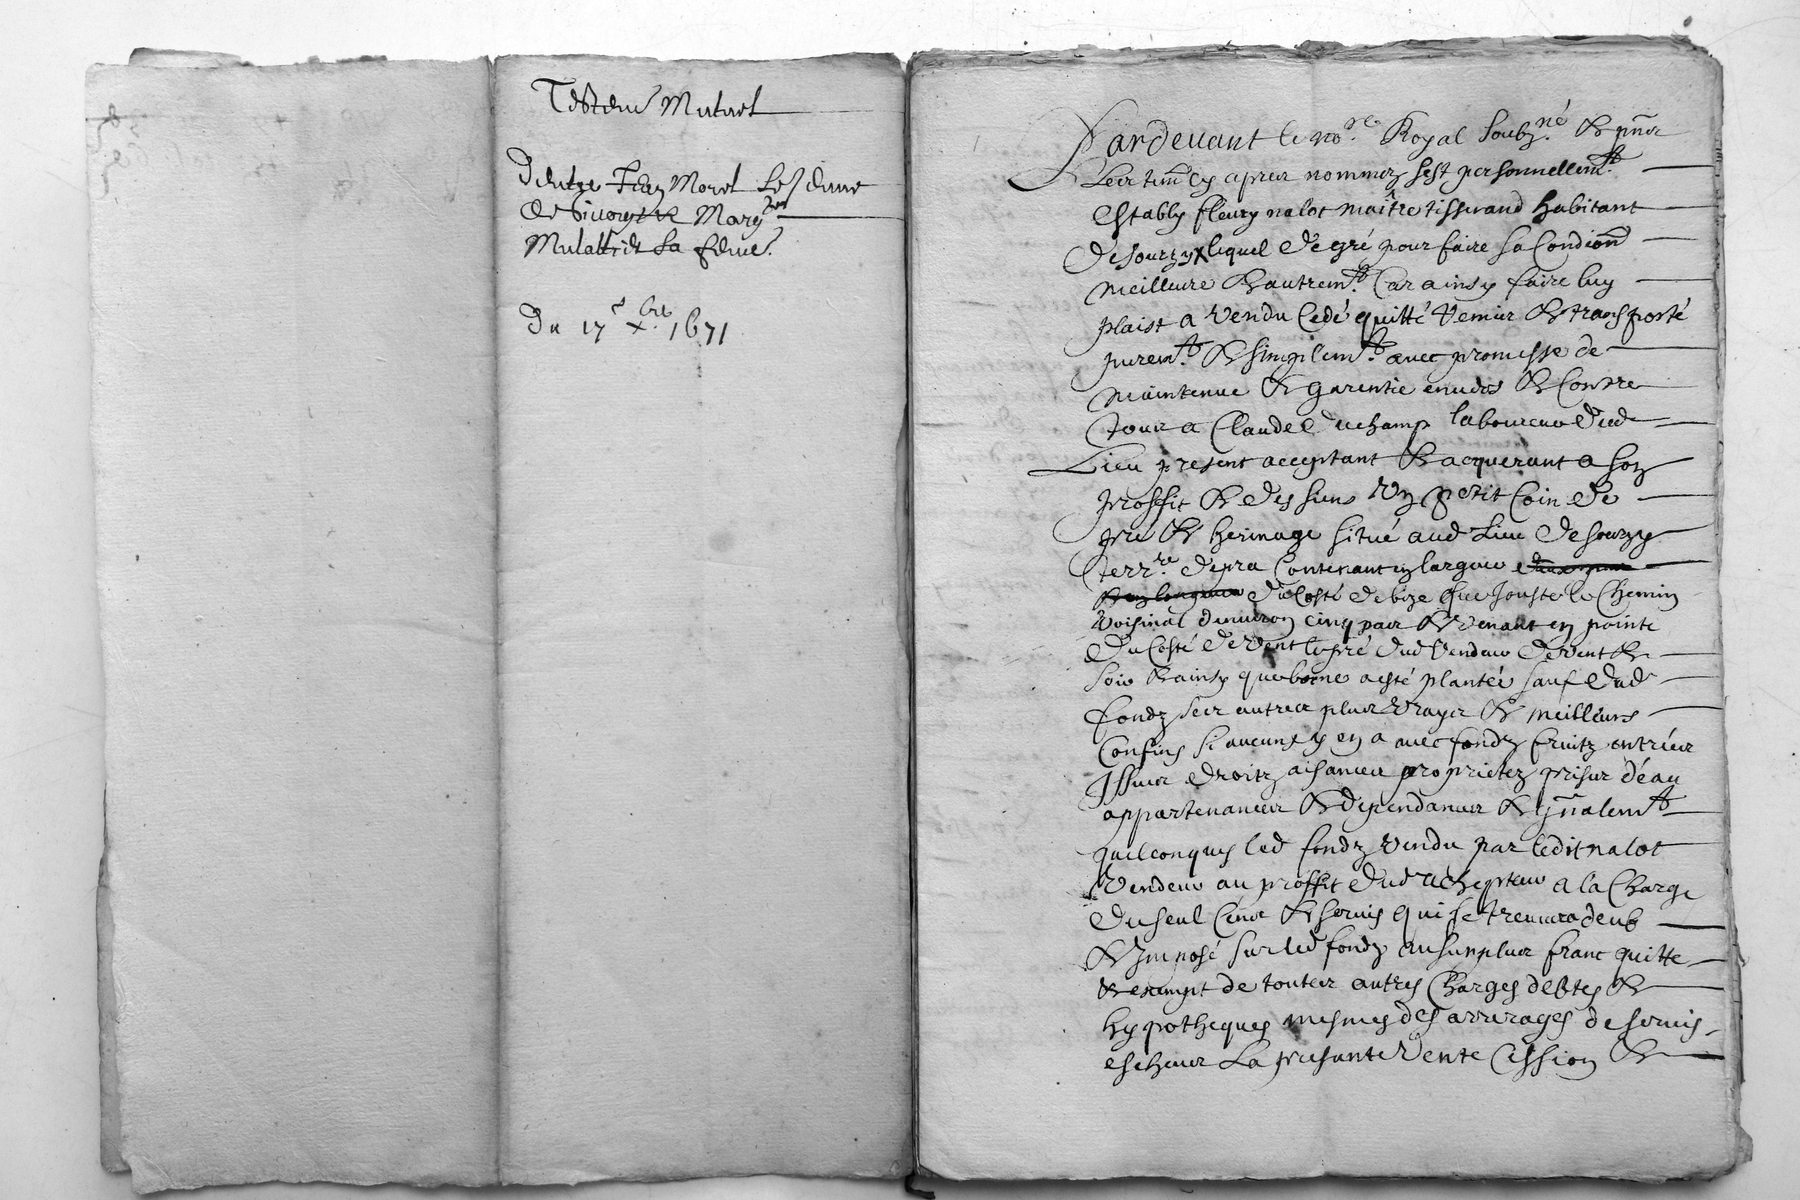 Testem.t Mutuel
d'entre Jean Morel Le Jeune
de Sivorge & Marg.te
Mulattiet sa feme.
Du 17.e X.bre 1671
Pardevant le no.re Royal Soubz.né & p̃nt
Les tem̃ cy apres nommez s'est personnellem.t
Estably fleury nalot maître tisserand habitant
De Sourzy lequel De gré pour faire sa Condiõn
meilleure & autrem.t Car ainsy faire luy
plaist a Vendu Cedé quitté remis & transporté
purem.t & simplem.t avec promesse de
maintenue & garentie envers & Contre
Tous a Claude Duchamp laboureur Dud
Lieu present acceptant & acquerant a soy
proffit & des siens Un petit Coin de
pré & herm​age situé aud Lieu De Sourzy
terr.re Depra Contenant en largeur
Du Costé De bize que Jouste le Chemin
Voisinal d'environ cinq pas & Venant en pointe
Du Costé De Vent le pré dud Vendeur De Vent &
Soir & ainsy que borne a esté plantée sauf Dud
fondz ses autres plus Vrayes & meilleurs
Confins si aucuns y en a avec fondz fruitz entrées
Issues droitz aisances proprietez prises d'eau
appartenances & dependances & gñalem.t
quelconques led fondz Vendu par ledit nalot
Vendeur au proffit Dud achepteur a la Charge
Du seul Cens & servis qui se treuvera deub
& Imposé sur led fondz au surplus franc quitte
& exempt de toutes autres Charges debtes &
hypotheques mesmes des arrerages de servis
escheus La presante Vente Cession &